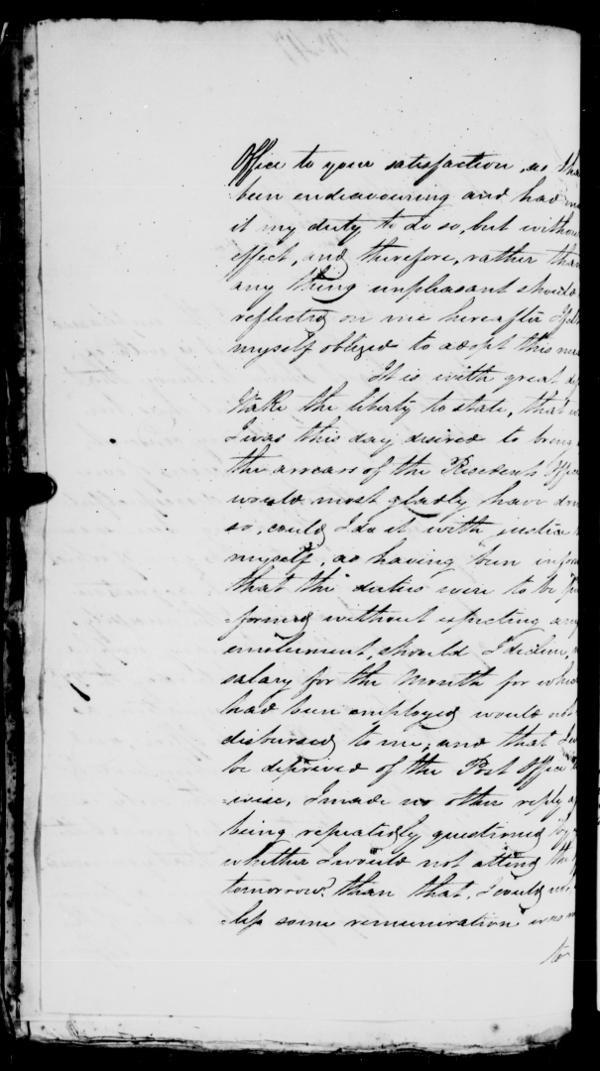 Office to your satisfaction, as I ha
been endeavouring and had
it my duty to do so, but withou
effect, and therefore, rather than
any thing unpleasant should
reflected on me hereafter I feel
myself obliged to adopt this mea
It is with great
I take the liberty to state, that
I was this day desired to bring
the arrears of the Resident's Office
would most gladly have don
so, could I do it with justice
myself, as having been infor
that the duties were to be per
-formed without expecting any
emolument, should I decline,
salary for the Month for which
had been employed would not
disbursed to me, and that I
be deprived of the Post Office
-wise, I made no other reply
being repeatedly questioned by
whether I would not attend the
tomorrow, than that, I could
-less some remuneration was
to